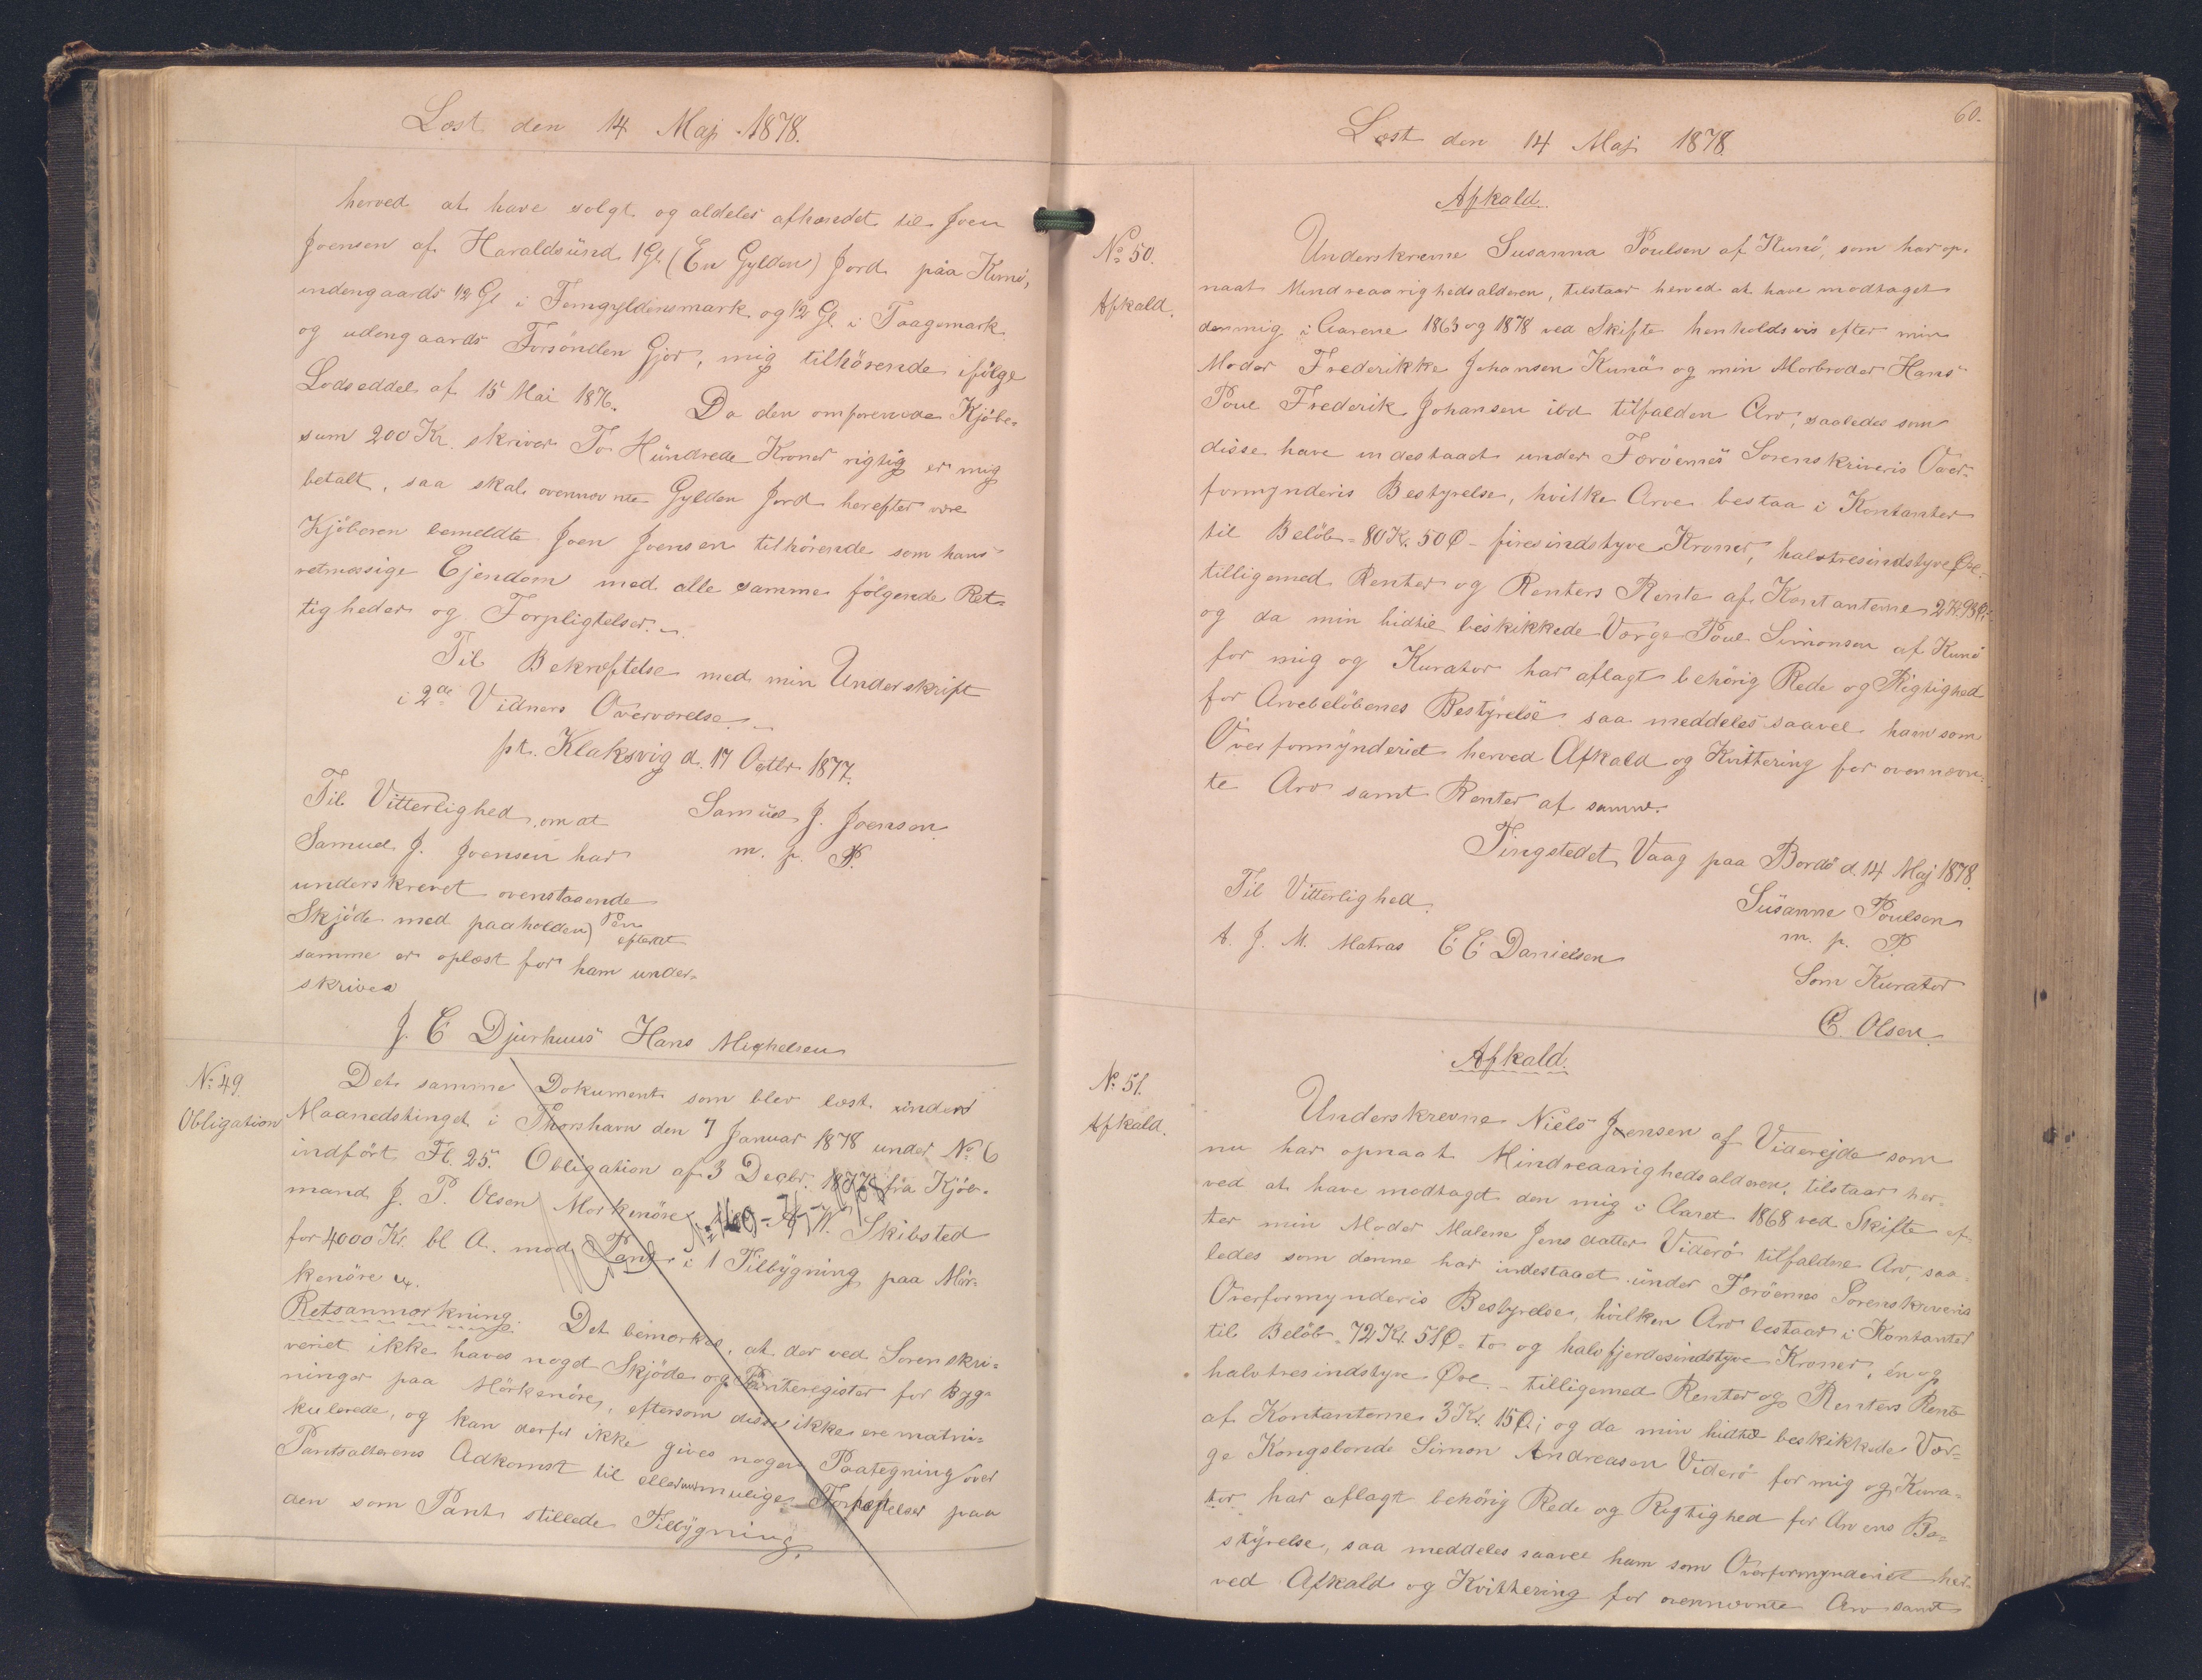 Læst den 14 Maj 1878.
herved at have solgt og aldeles afhændet til Joen
Joensen af Haraldsünd 1 Gl. (En Gylden) Jord paa Kunö,
indengaards 1/2 Gl. i Femgyldensmark og 1/2 Gl. i Taagemark
og udengaards Forsönden Gjor, mig tilhörende ifölge
Lodseddel af 15 Mai 1876. Da den omforenede Kjöbe-
sum 200 Kr. skriver To Hündrede Kroner rigtig er mig
betalt, saa skal ovennævnte Gylden Jord herefter være
Kjöberen bemeldte Joen Joensen tilhörende som hans
retmæssige Ejendom med alle samme fölgende Ret-
tigheder og Forpligtelser.
Til Bekræftelse med min Underskrift
i 2de Vidners Overværelse
pt. Klaksvig d. 17 Octbr 1877.
Til Vitterlighed, om at Samüel J. Joensen
Samuel J. Joensen har m. p. P.
underskrevet ovenstaaende
Skjöde med paaholden Pen
efterat
samme er oplæst for ham under-
skrives
J. C Djurhuus Hans Mighelsen
No. 49. Det samme Dokument som blev læst ünder
Obligation Maanedstinget i Thorshavn den 7 Januar 1878 under No. 6
indfört Fl. 25. Obligation af 3 Decbr. 1877 fra Kjöb-
mand J. P. Olsen Morkenöre W. Skibsted
for 4000 Kr. bl A. mod Pant i 1 Tilbygning paa Mör-
kenöre
Retsanmærkning. Det bemærkes, at der ved Sorenskri-
veriet ikke haves noget Skjöde og Panteregister for Byg-
ninger paa Mörkenöre, eftersom disse ikke ere matri-
kulerede, og kan derfor ikke gives nogen Paategning over
Pantsætterens Adkomst til eller om mulige Forhæftelser paa
den som Pant stillede Tilbygning.
60.
Læst den 14 Maj 1878.
Afkald.
No. 50. Underskrevne Susanna Poulsen af Kunö, som har op-
Afkald. naaet Mindreaarighedsalderen, tilstaar herved at have modtaget
den mig i Aarene 1863 og 1878 ved Skifte henholdsvis efter min
Moder Frederikke Johansen Kunö og min Morbroder Hans
Poul Frederik Johansen ibd tilfalden Arv, saaledes som
disse have indestaaet under Færöernes Sorenskriveris Over-
formynderis Bestyrelse, hvilke Arve bestaa i Kontanter
til Belöb 80 Kr. 50 Ø - firesindstyve Kroner, halvtresindstyve Øre -
tilligemed Renter og Renters Rente af Kontanterne 2 Kr. 98 Ø;
og da min hidtil beskikkede Værge Poul Simonsen af Kunö
for mig og Kurator har aflagt behörig Rede og Rigtighed
for Arvebelöbenes Bestyrelse saa meddeles saavel ham som
Overformynderiet herved Afkald og Kvittering for ovennævn-
te Arv samt Renter af samme.
Tingstedet Vaag paa Bordö d. 14 Maj 1878.
Til Vitterlighed. Süsanne Poulsen
A. J. M. Matras C C Danielsen m. p. P.
Som Kurator
C. Olsen.
Afkald.
No. 51. Underskrevne Niels Jensen af Viderejde som
Afkald. nu har opnaaet Mindreaarighedsalderen, tilstaar her-
ved at have modtaget den mig i Aaret 1868 ved Skifte ef-
ter min Moder Malene Jensdatter Viderö tilfaldne Arv, saa-
ledes som denne har indestaaet ünder Færöernes Sorenskriveris
Overformynderis Bestyrelse, hvilken Arv bestaar i Kontanter
til Belöb 72 Kr. 51 Ø - to og halvfjerdesindstyve Kroner, én og
halvtresindstyve Øre. - tilligemed Renter og Renters Rente
af Kontanterne 3 Kr. 15 Ø; og da min hidtil beskikkede Vær-
ge Kongsbonde Simon Andreasen Viderö for mig og Kura-
tor har aflagt behörig Rede og Rigtighed for Arvens Be-
styrelse, saa meddeles saavel ham som Overformynderiet her-
ved Afkald og Kvittering for ovennævnte Arv samt